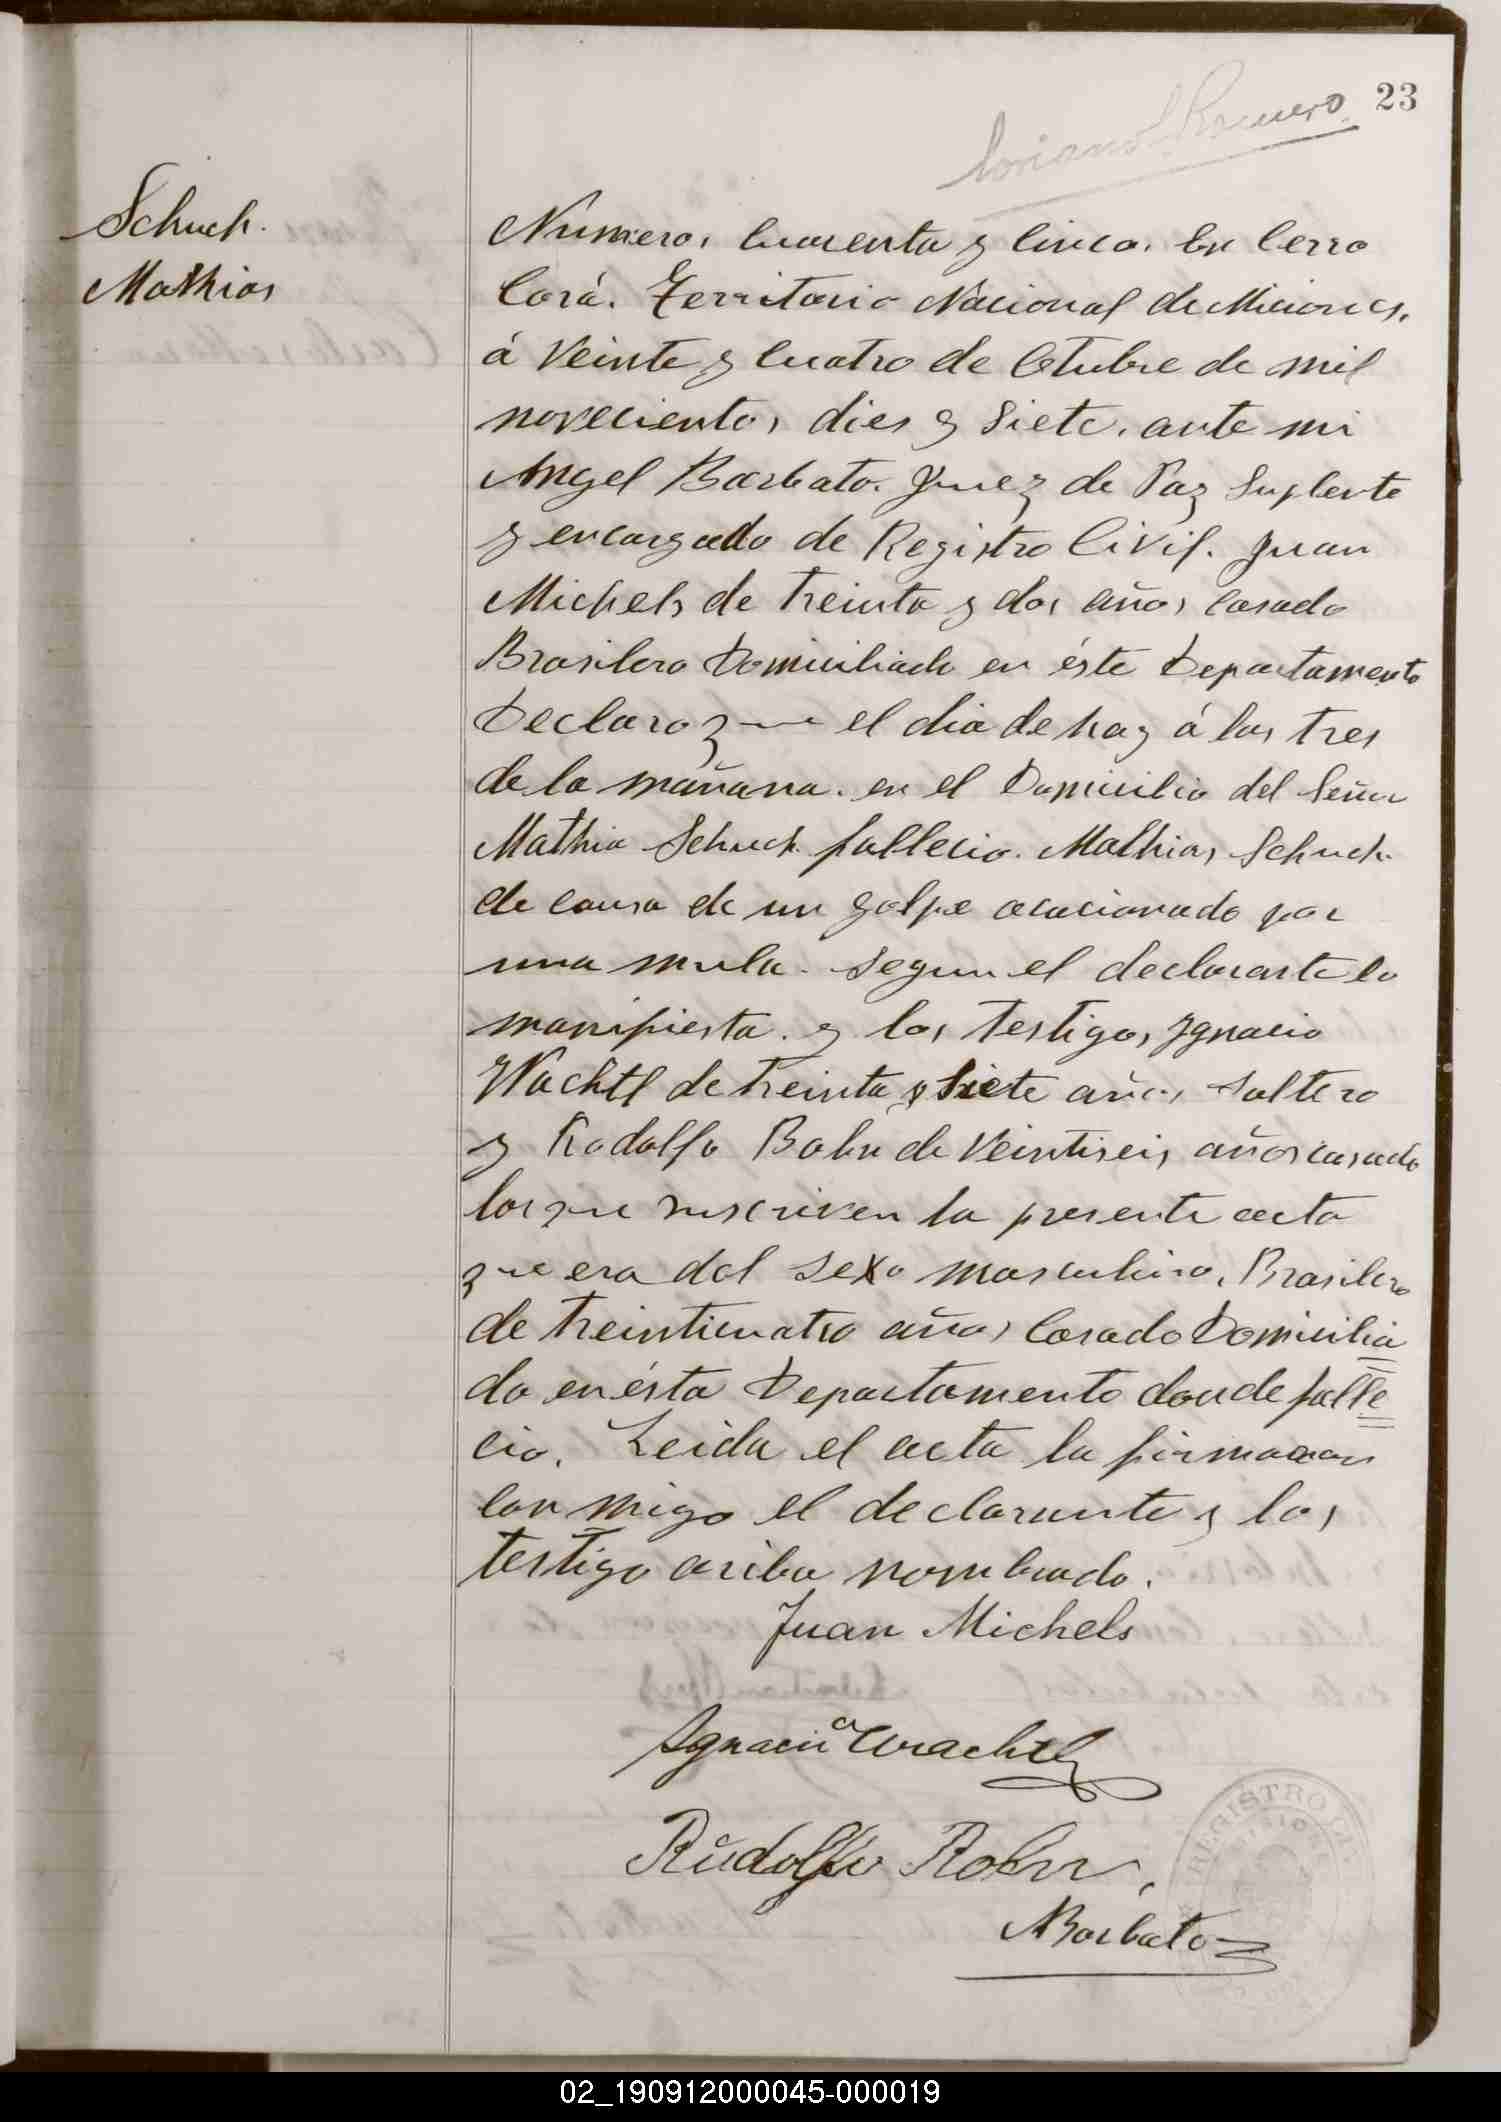 23
Romero
Schuch.
Mathias
Numero, Cuarenta y Cinco. En Cerro
Corá. Territorio Nacional de Miciones.
á Veinte y Cuatro de Otubre de mil
novecientos dies y siete. ante mi
Angel Barbato. Juez de Paz Suplente
y encargado de Registro Civil. Juan
Michels de treinta y dos años casado
Brasilero Domiciliado en éste Departamento
Declaro que el dia de hoy á las tres
de la mañana. en el Domicilio del Señor
Mathia Schuch fallecio. Mathias Schuch
de causa de un golpe ocacionado por
una mula. segun el declarante lo
manifiesta. y los testigos Ygnacio
Wachtl de treinta y siete años soltero
y Rodolfo Bohn de veintiseis años casado
los que suscriven la presente acta
que era del sexo masculino, Brasilero
de treinticuatro años Casado Domicilia
do en ésta Departamento donde falle
cio. Leida el acta la firmaron
con migo el declarante y los
testigo ariba nombrado.
Juan Michels
Ignacio Wachtl
Rudolfo Rohn
ABarbato
REGISTRO
02_190912000045-000019